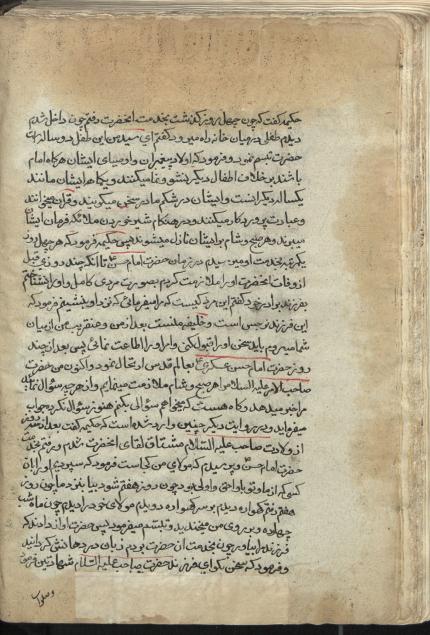 حکیمه گفت که چون چهل روز گذشت بخدمت انحضرت رفتم چون داخل شدم
دیدم طفلی در میان خانه راه میرود گفتم ای سید من این طفل دو ساله است
حضرت تبسم نمود و فرمود که اولاد پیغمبران و اوصیای ایشان هرکاه امام
باشند بر خلاف اطفال دیکر نشو و نما میکنند و یکماهه ایشان مانند
یکساله دیکرانست و ایشان در شکم مادر سخن میکویند و قران میخوانند
و عبادت پروردکار میکنند و در هنکام شیر خوردن ملائکه فرمان ایشان
میبرند و هر صبح و شام بر ایشان نازل میشوند پس حکیمه فرمود که هر چهل روز
یکمرتبه بخدمت او میرسیدم در زمان حضرت امام حسن تا انکه چند روزی قبل
از وفات انحضرت او را ملازمت کردم بصورت مردی کامل و او را نشناختم
بفرزند برادر خود گفتم این مرد کیست که مرا میفرمائی که نزد او بنشینم فرمود که
این فرزند نرجس است و خلیفه منست بعد از من و عنقریب من از میان
شما میروم باید سخن او را قبول کنی و امر او را اطاعت نمائی پس بعد از چند
روز حضرت امام حسن عسکری بعالم قدس ارتحال نمود و اکنون من حضرت
صاحب الامر علیه السلام را هر صبح و شام ملازمت مینمایم و از هر چه سؤال نمایم
مرا خبر میدهد و کاه هست که میخواهم سؤالی بکنم هنوز سؤال نکرده جواب
میفرماید و در روایت دیکر چنین وارد شده است که حکیمه گفت بعد از سه روز
از ولادت صاحب علیه السلام مشتاق لقای انحضرت شدم و رفتم بخدمت
حضرت امام حسن و پرسیدم که مولای من کجاست فرمود که سپردیم او را بان
کسی که از ما و تو باو احق و اولی بود چون روز هفتم شود بیا بنزد ما چون روز
هفتم رفتم کهواره دیدم بر سر کهواره دویدم مولای خود را دیدم چون ماه شب
چهارده و بر روی من میخندید و تبسم میفرمود پس حضرت اواز دادند که
فرزند مرا بیاور چون بخدمت ان حضرت بردم زبان در دهانش کردانید
و فرمود که سخن بکو ای فرزند حضرت صاحب علیه السلام شهادتین فرمود
و صلوات